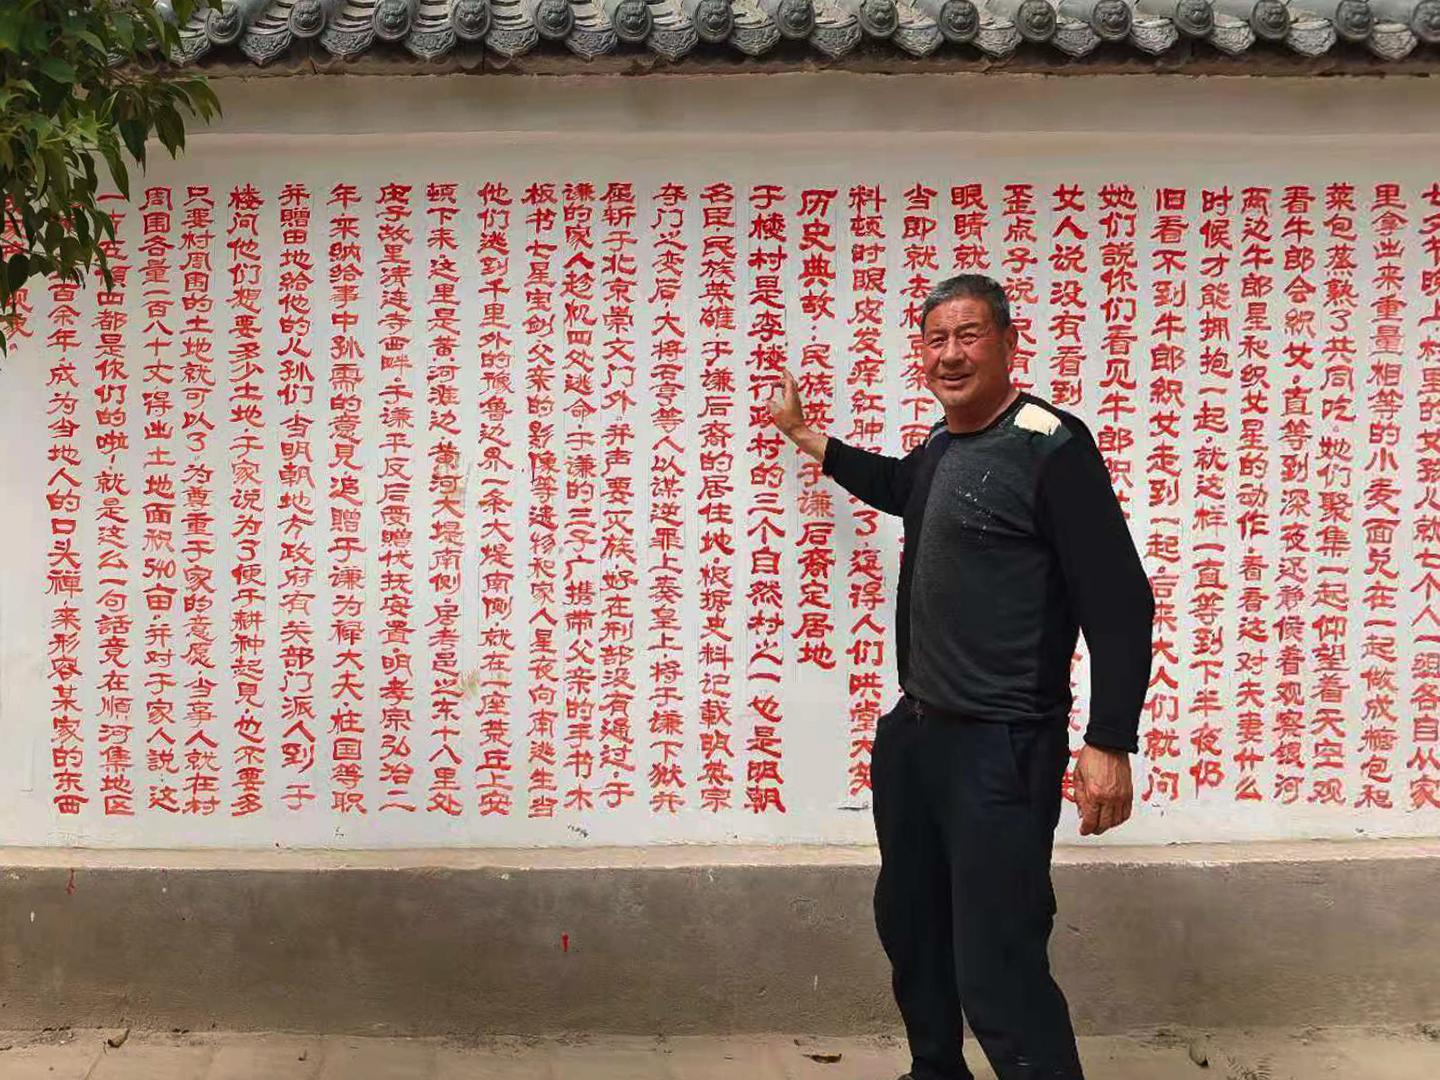 七夕节晚上村里的女孩儿就七个人一组各自从家
里拿出来重量相等的小麦面兑在一起做成檐包和
菜包蒸熟了共同吃.她们聚集一起仰望着天空观
看牛郎会织女.直等到深夜还静候着观察银河
两边牛郎星和织女星的动作.看看这对夫妻什么
时候才能拥抱一起.就这样一直等到下半夜仍
旧看不到牛郎织女走到一起.后来大人们就问
她们説你们看见牛郎织
女人说没有看到
歪点子说
眼睛就
当即就去 条下面
料顿时眼皮发痒红肿 了逗得人们哄堂大笑
历史典故.民族英 于谦后裔定居地
于楼村是李楼行政村的三个自然村之一也是明朝
名臣.民族英雄.于谦后裔的居住地.根据史料记载明英宗
夺门之变后.大将石亨等人以谋逆罪上奏皇上将于谦下狱并
屈斩于北京崇文门外.并声要灭族.好在刑部没有通过.于
谦的家人趁机四处逃命.于谦的三子广携带父亲的手书木
板书七星宝剑父亲的影像等遗物和家人星夜向南逃生当
他们逃到千里外的豫鲁边界一条大堤南侧.就在一座荒丘上安
顿下来.这里是黄河滩边.黄河大堤南侧.居考邑之东十八里处
庄子故里清莲寺西畔.于谦平反后受赠优抚安置.明孝宗弘治二
年.采纳给事中孙需的意見追赠于谦为禄大夫.柱国等职
并赠田地给他的儿孙们.当明朝地方政府有关部门派人到于
楼问他们想要多少土地.于家说为了便于耕种起見.也不要多
只要村周围的土地就可以了.为尊重于家的意愿.当事人就在村
周围各量二百八十丈得出土地面积540亩.并对于家人説.这
一方五顷四都是你们的啦.就是这么一句話竟在順河集地区
百余年.成为当地人的口头禅.来形容某家的东西